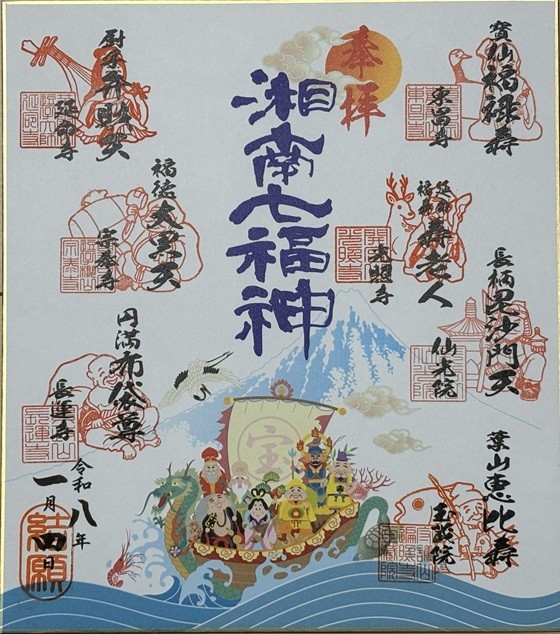 奉拝
湘南七福神
寳仙福禄寿
東昌寺
延命
福寿
寿老人
光照寺
長柄毘沙門天
仙光院
葉山恵比寿
玉蔵院
厨子弁財天
延命寺
福徳大黒天
宗泰寺
円満布袋尊
長運寺
宝
令和八年
一月四日
結願